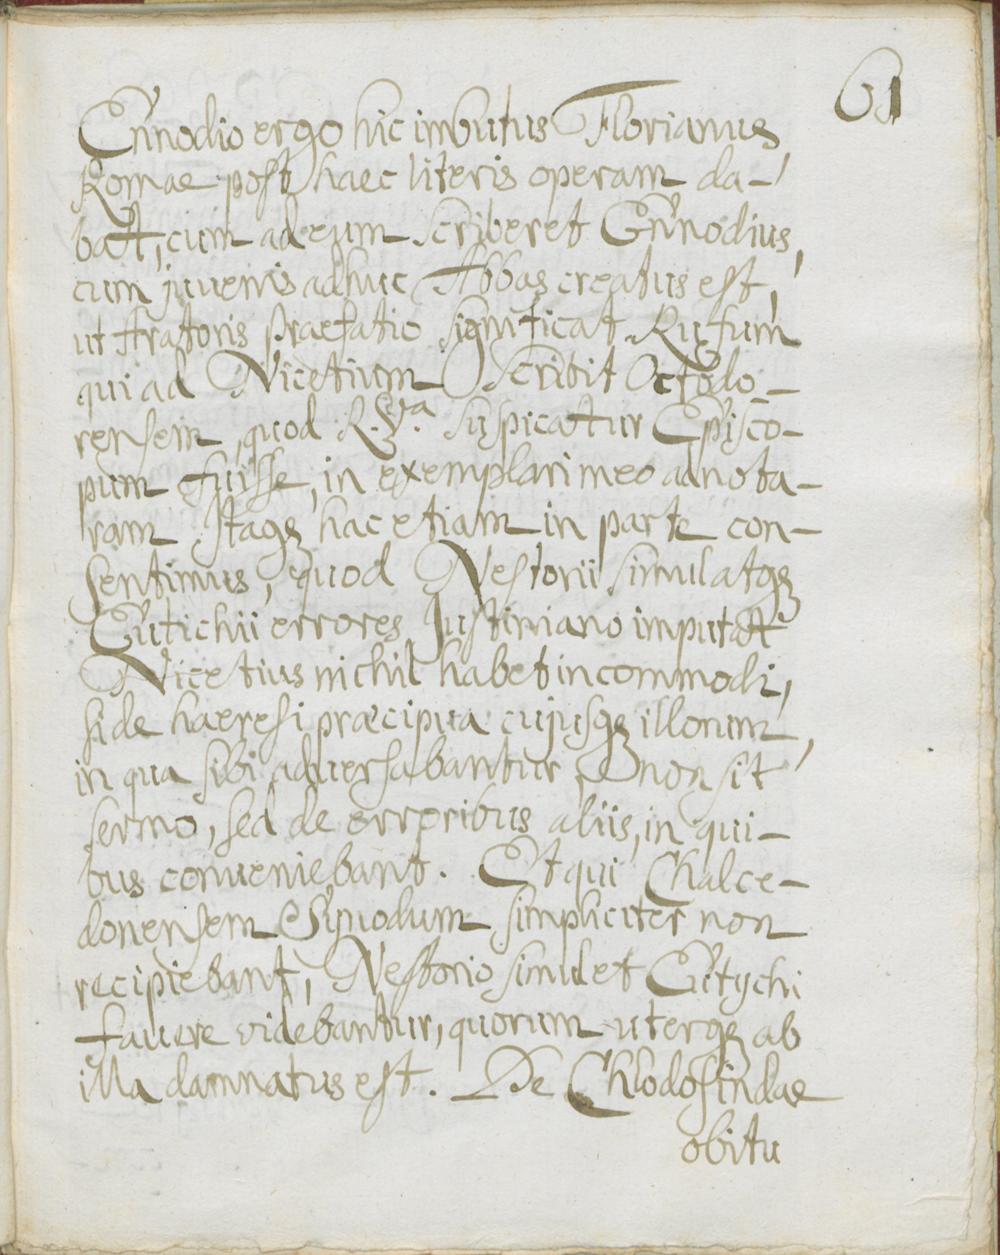 61
Ennodio ergo hic imbutus Florianus
Romae post haec literis operam da-
bat, cum ad eum scriberet Ennodius,
cum juvenis adhuc Abbas creatus est,
ut Aratoris praefatio significat. Rufum
qui ad Nicetium scribit Octodo-
rensem, quod R. V.ᵃ suspicatur Episco-
pum fuisse, in exemplari meo adnota-
ram Itaqȝ hac etiam in parte con-
sentimus, quod Nestorii simul atqȝ
Eutichii errores Justiniano imputat
Nicetius nichil habet incommodi,
si de haeresi praecipua cujusqȝ illorum,
in qua sibi adversabantur, non sit
sermo, sed de erroribus aliis, in qui-
bus conveniebant. Et qui Chalce-
donensem Sinodum simpliciter non
recipiebant, Nestorio simul et Eutychi
favere videbantur, quorum uterqȝ ab
illa damnatus est. De Chlodosindae
obitu